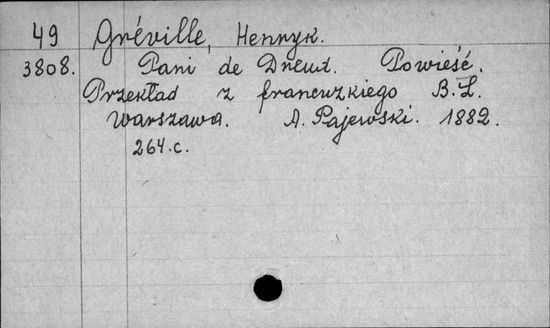 49 Gréville, Henryk.
3808. Pani de Dreux. Powieść.
Przekład z francuzkiego B. L.
Warszawa. A. Pajewski. 1882.
264.c.